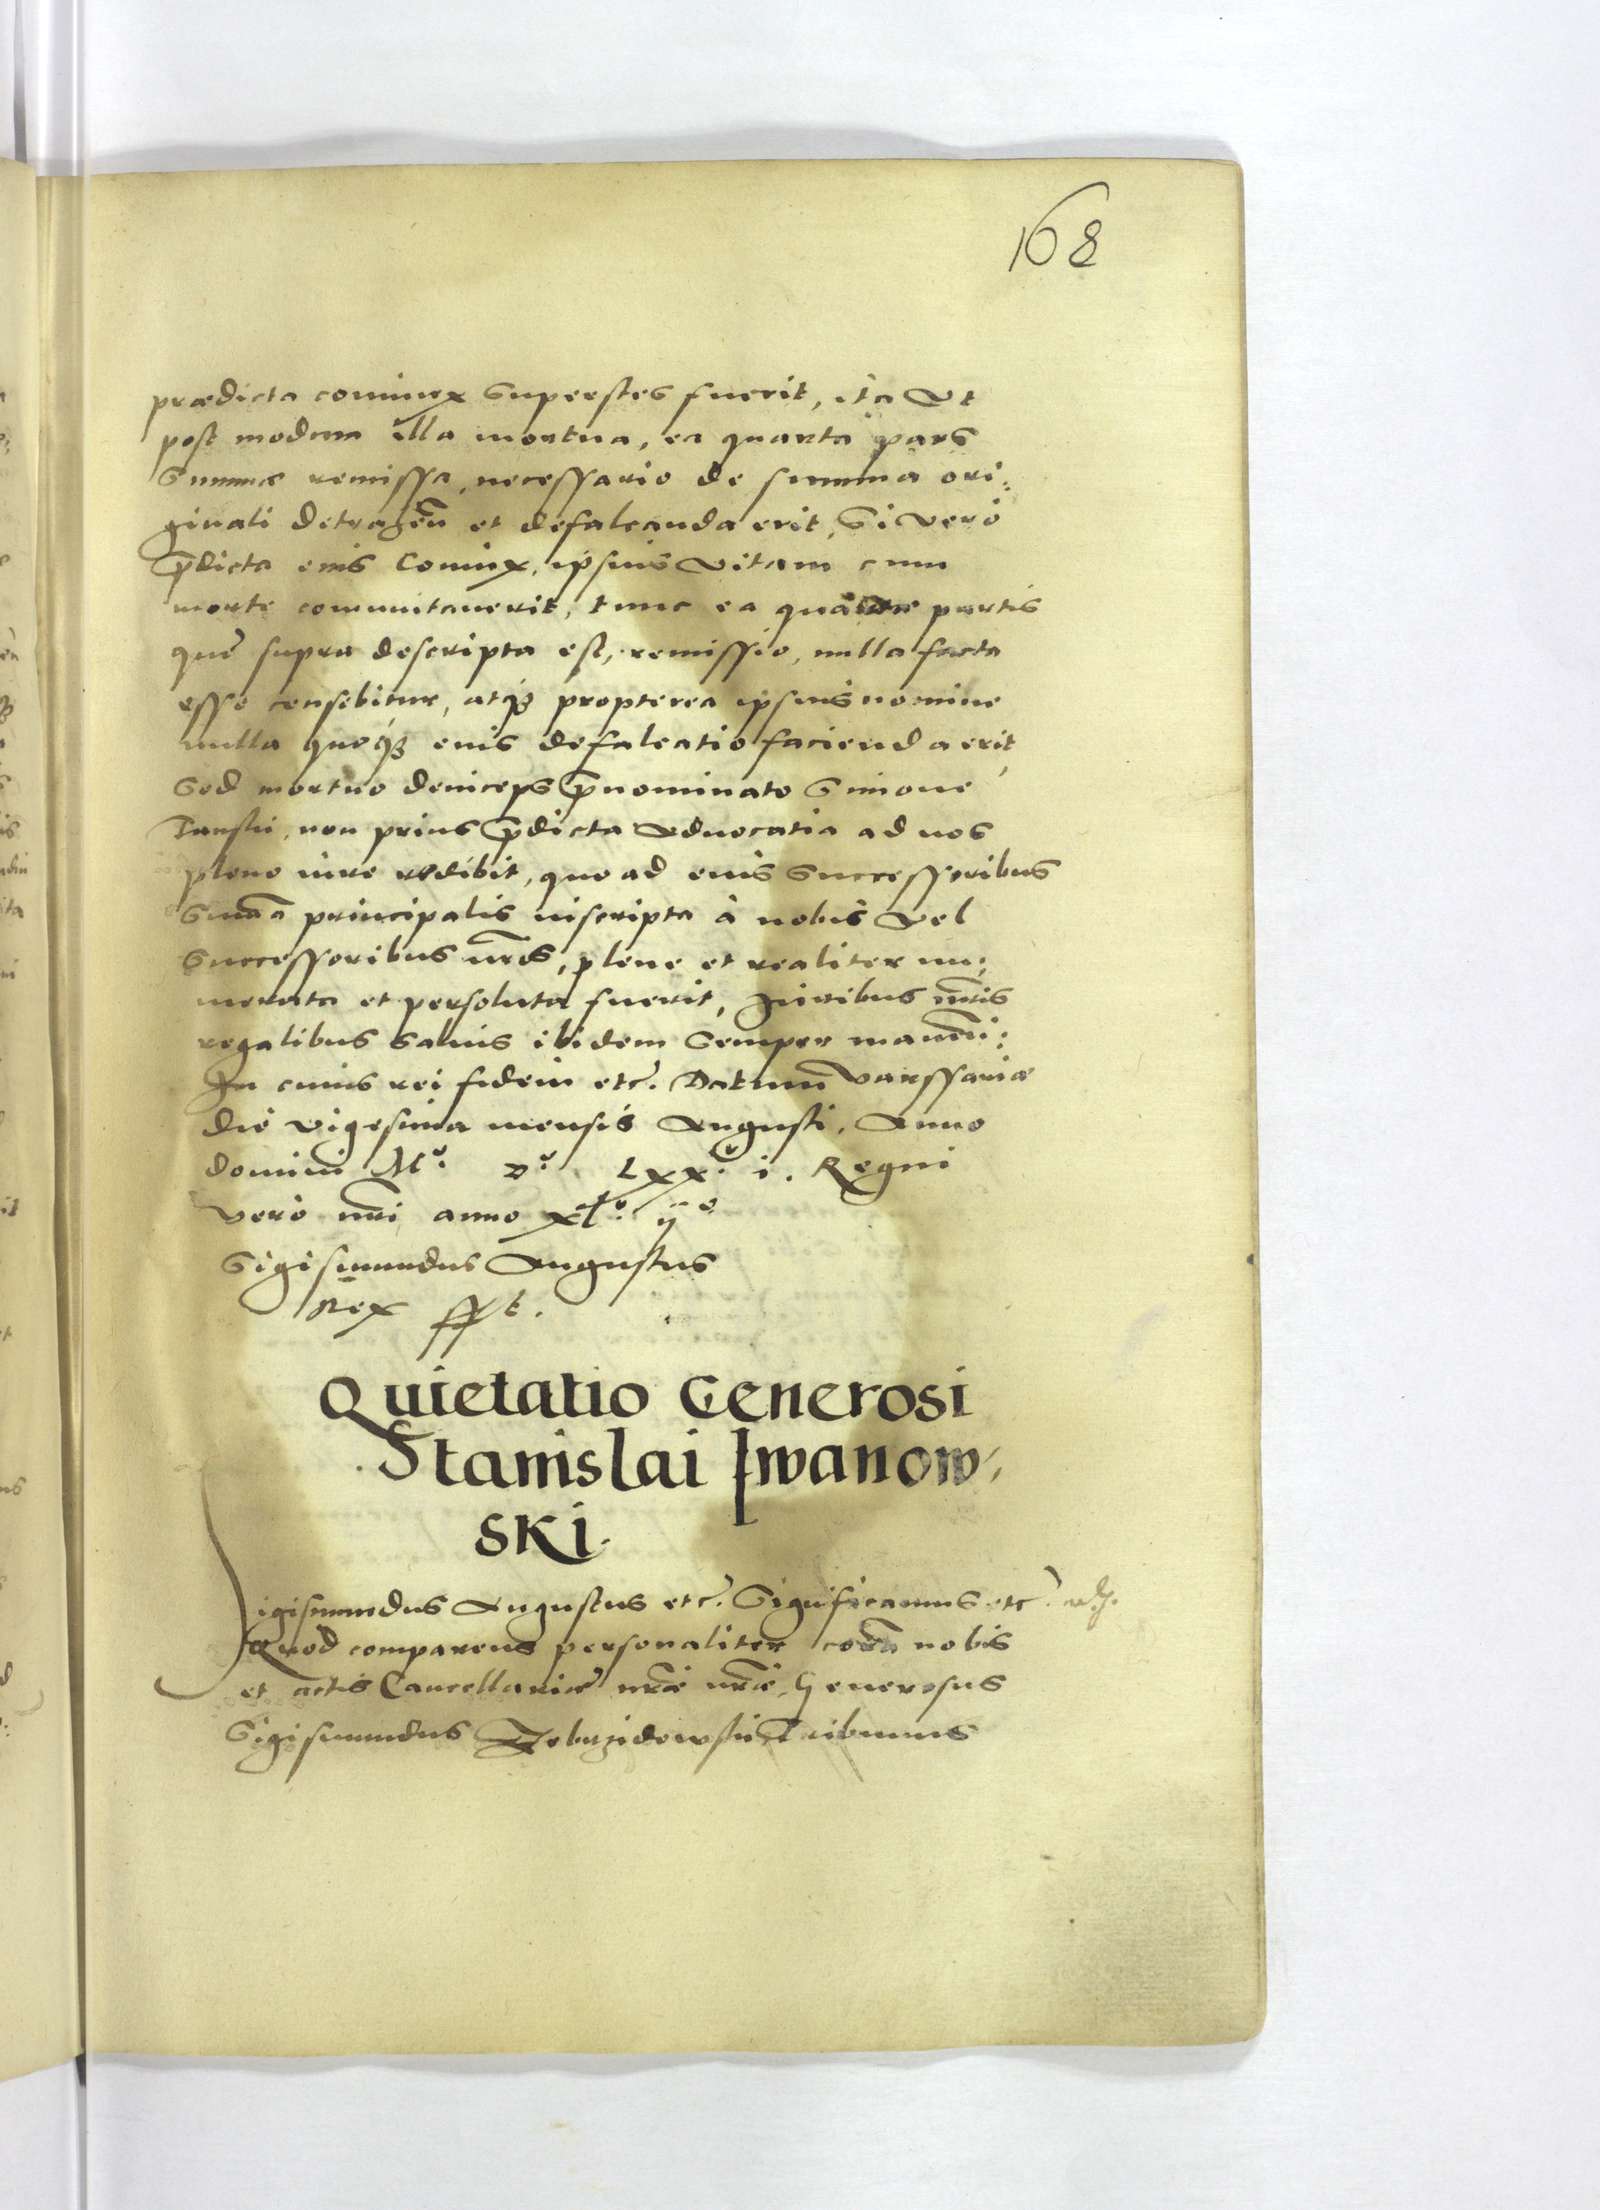 168
prædicta coniunx superstes fuerit, ita ut
post modum illa mortua, ea quarta pars
summæ remissa, necessario de summa ori:
ginali detrahen̄ et defalcanda erit, Si vero
p̄dicta eius Coniunx, ipsius vitam cum
morte commutaverit, tunc ea quartæ partis
que supra descripta est, remissio, nulla facta
esse censebitur, atq₃ propterea ipsius nomine
nulla quoq₃ eius defalcatio facienda erit,
Sed mortuo deinceps p̄nominato Simone
non prius p̄dicta Advocatia ad nos
pleno iure redibit, quo ad eius Successoribus
Sum̄a principalis inscripta à nobis vel
Successoribus n̄ris, plene et realiter nu:
merata et persoluta fuerit, Iuribus n̄ris
regalibus salvis ibidem semper manen̄:
In cuius rei fidem etc. Datum Varssaviæ
die vigesima mensis Augusti, Anno
domini Mº. Dº. Lxxº. i. Regni
vero n̄ri anno xlº. ijº
Sigismundus Augustus
Rex sst.
Quietatio Generosi
Stanislai Iwanow,
ski.
Sigismundus Augustus etc. Significamus etc.
Quod comparens personaliter corā nobis
et actis Cancellariæ n̄ræ n̄ræ, Generosus
Sigismundus Zebrzidowski Tribunus